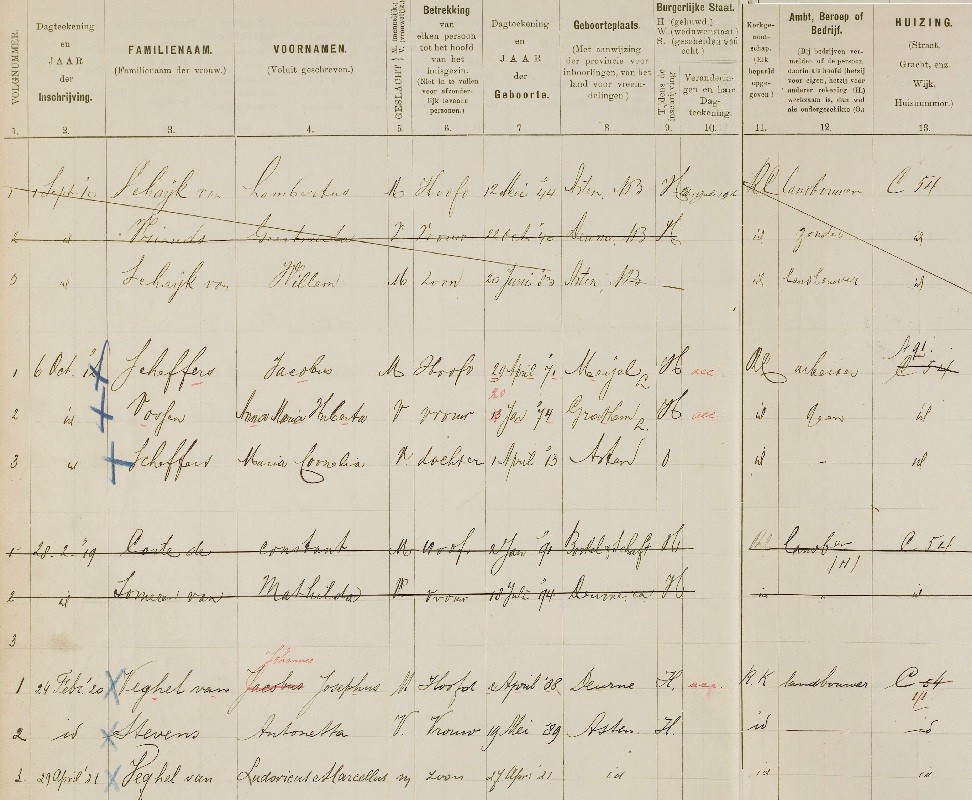 VOLGNUMMER.
Dagteekening en JAAR der Inschrijving.
FAMILIENAAM. (Familienaam der vrouw.)
VOORNAMEN. (Voluit geschreven.)
GESLACHT
Betrekking van elken persoon tot het hoofd van het huisgezin. (Niet in te vullen voor afzonderlijk levende personen.)
Dagteekening en JAAR der Geboorte.
Geboorteplaats. (Met aanwijzing der provincie voor inboorlingen, van het land voor vreemdelingen.)
Burgerlijke Staat.
H (gehuwd.)
W. (weduwenstaat.)
S. (gescheiden van echt.)
Tijdens de inschrijving
Veranderingen en haar Dagteekening.
Kerkgenootschap. (Elk bepaald opgegeven)
Ambt, Beroep of Bedrijf.
HUIZING. (Straat, Gracht, enz. Wijk, Huisnummer.)
1. 2. 3. 4. 5. 6. 7 8 9. 10. 11. 12. 13.
1 1 Sept '10 Schaijk van Lambertus M Hoofd 12 Mei '44 Asten, NB H RK landbouwer C 54
2 id Gertruda V Vrouw Deurne, NB H id zonder id
3 id Schaijk van Willem M Zoon 20 Juni '83 Asten, NB — id landbouwer id
A 91.
1 6 Oct. Scheffers Jacobus M Hoofd 29 April '72 Meijel L. H acc RK arbeider C 54
20
2 id Voossen Anna Maria Huberta V vrouw 13 Jan '74 Grathem L. H acc id geen id
3 id Scheffers Maria Cornelia V dochter 1 April '13 Asten O id - id
1 28-2-'19 Coste de constant M Hoofd 2 Jan '91 H RK landb.er C. 54
(H)
2 id Someren van Mathilda V vrouw 18 Juli '94 Deurne ca H id id
3
Johannes
1 24 Febr. '20 Veghel van Jacobus Josephus M Hoofd April '88 Deurne H. acc. R.K landbouwer C 54
2 id Stevens Antonetta V. Vrouw 19 Mei '89 Asten H. id - id
3 29 April '21 Veghel van Ludovicus Marcellus m zoon 27 April '21 id id id